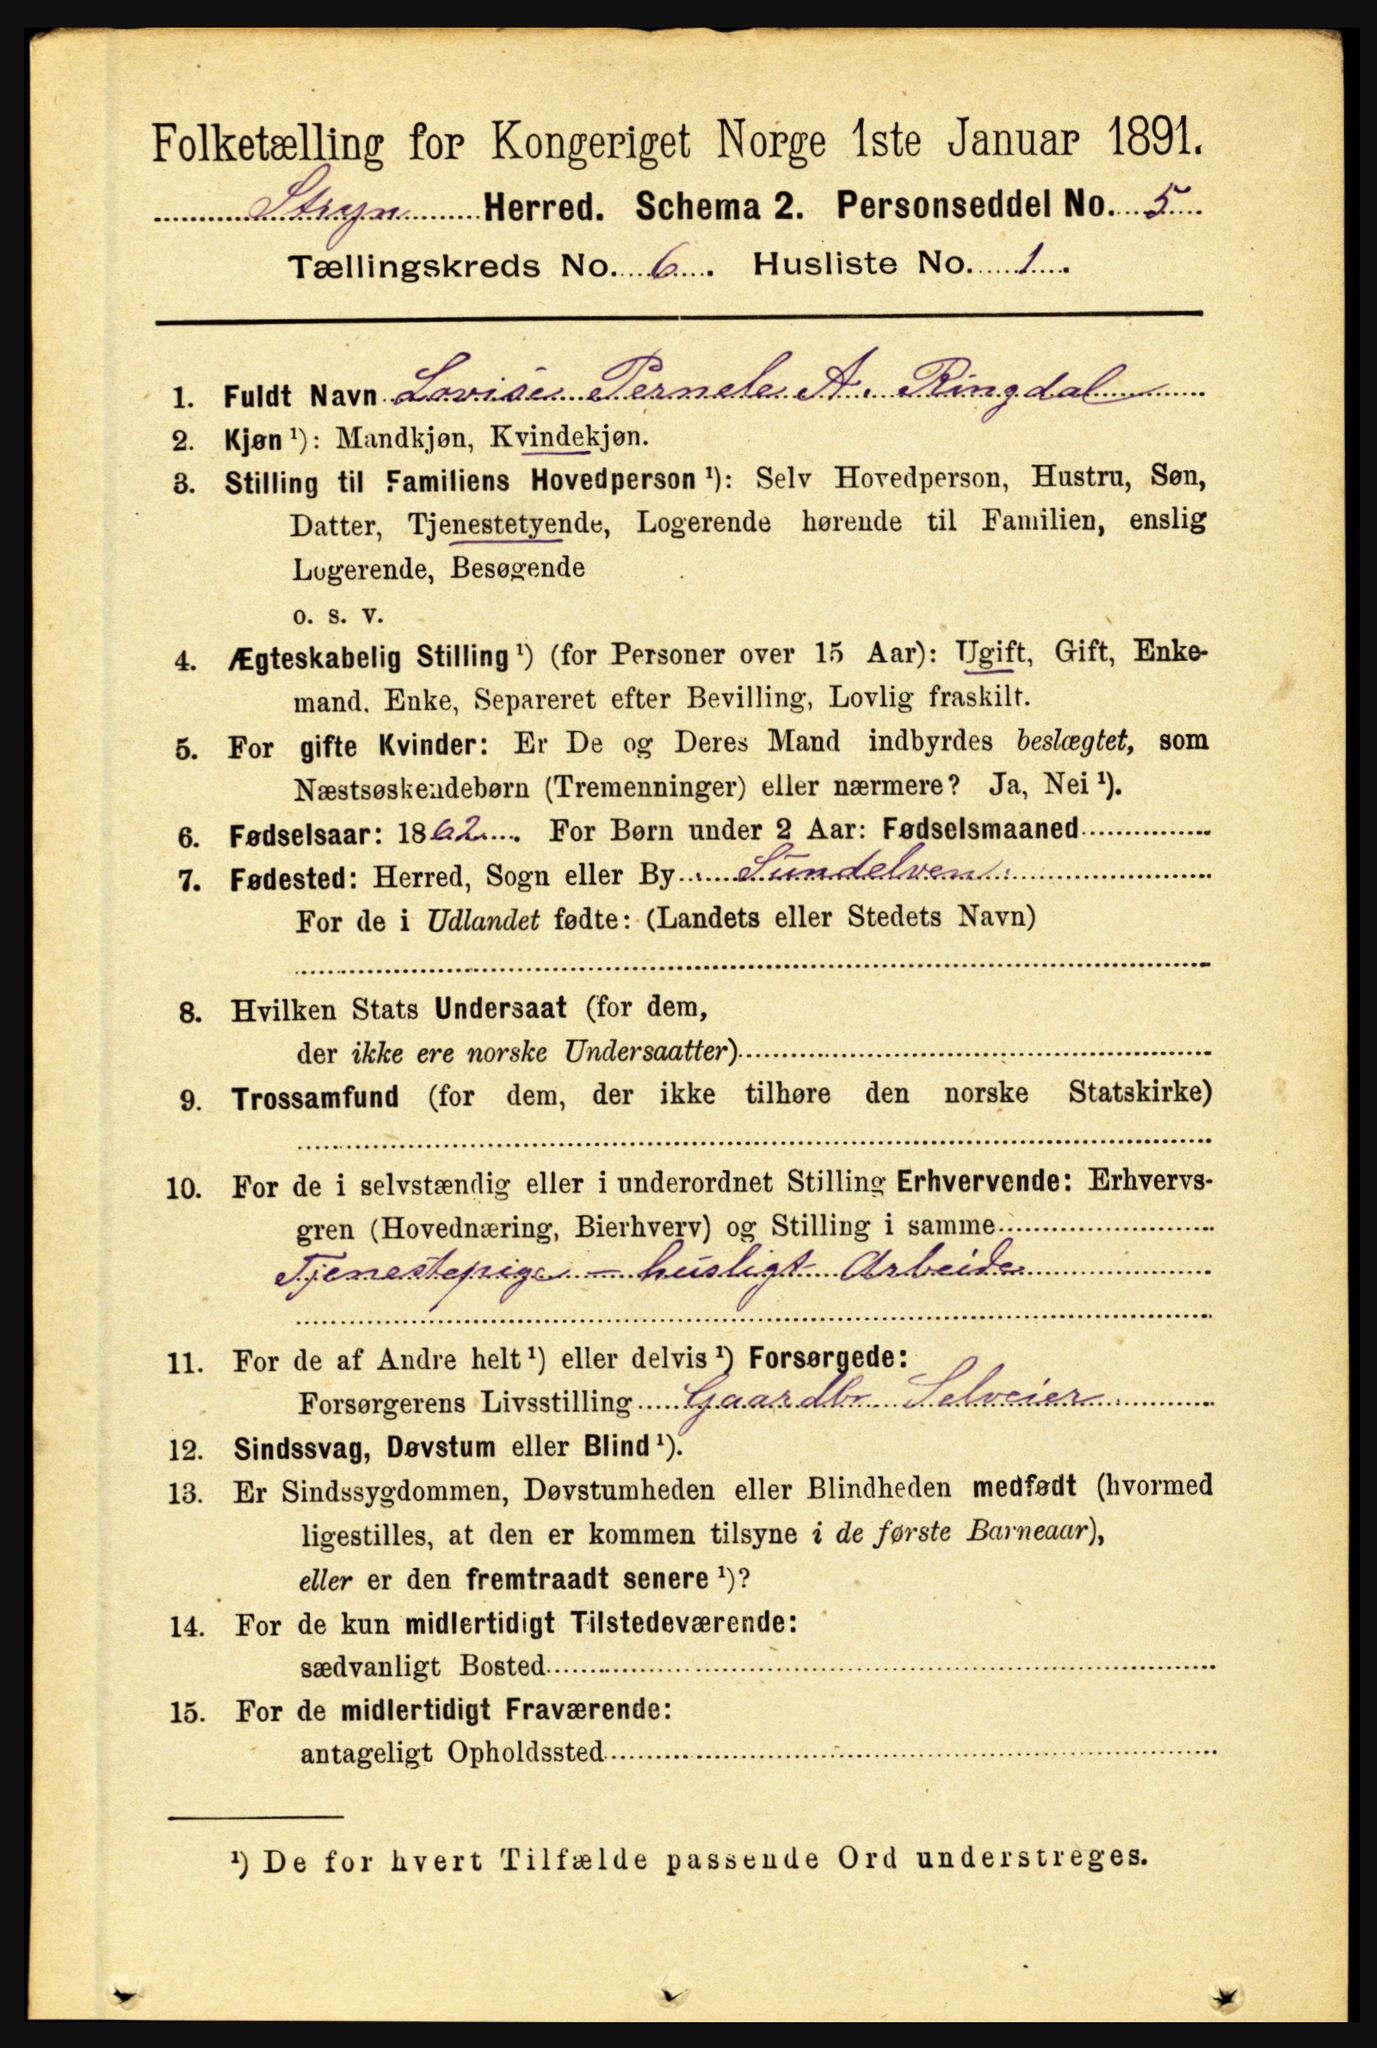 Folketælling for Kongeriget Norge 1ste Januar 1891.
Stryn Herred. Schema 2. Personseddel No. 5
Tællingskreds No. 6. Husliste No. 1.
1. Fuldt Navn Lovise Pernele A. Ringdal
2. Kjøn ¹): Mandkjøn, Kvindekjøn.
3. Stilling til Familiens Hovedperson ¹): Selv Hovedperson, Hustru, Søn,
Datter, Tjenestetyende, Logerende hørende til Familien, enslig
Logerende, Besøgende
o. s. v.
4. Ægteskabelig Stilling ¹) (for Personer over 15 Aar): Ugift, Gift, Enke-
mand. Enke, Separeret efter Bevilling, Lovlig fraskilt.
5. For gifte Kvinder: Er De og Deres Mand indbyrdes beslægtet, som
Næstsøskendebørn (Tremenninger) eller nærmere? Ja, Nei ¹).
6. Fødselsaar: 1862. For Børn under 2 Aar: Fødselsmaaned
7. Fødested: Herred, Sogn eller By Sundelven
For de i Udlandet fødte: (Landets eller Stedets Navn)
8. Hvilken Stats Undersaat (for dem,
der ikke ere norske Undersaatter)
9. Trossamfund (for dem, der ikke tilhøre den norske Statskirke)
10. For de i selvstændig eller i underordnet Stilling Erhvervende: Erhvervs-
gren (Hovednæring, Bierhverv) og Stilling i samme
Tjenestepige - husligt Arbeide
11. For de af Andre helt ¹) eller delvis ¹) Forsørgede:
Forsørgerens Livsstilling Gaardbr Selveier
12. Sindssvag, Døvstum eller Blind ¹).
13. Er Sindssygdommen, Døvstumheden eller Blindheden medfødt (hvormed
ligestilles, at den er kommen tilsyne i de første Barneaar),
eller er den fremtraadt senere ¹)?
14. For de kun midlertidigt Tilstedeværende:
sædvanligt Bosted
15. For de midlertidigt Fraværende:
antageligt Opholdssted
¹) De for hvert Tilfælde passende Ord understreges.